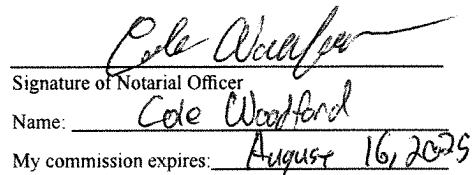 Cole Woodford
Signature of Notarial Officer
Name: Cole Woodford
My commission expires: August 16, 2025